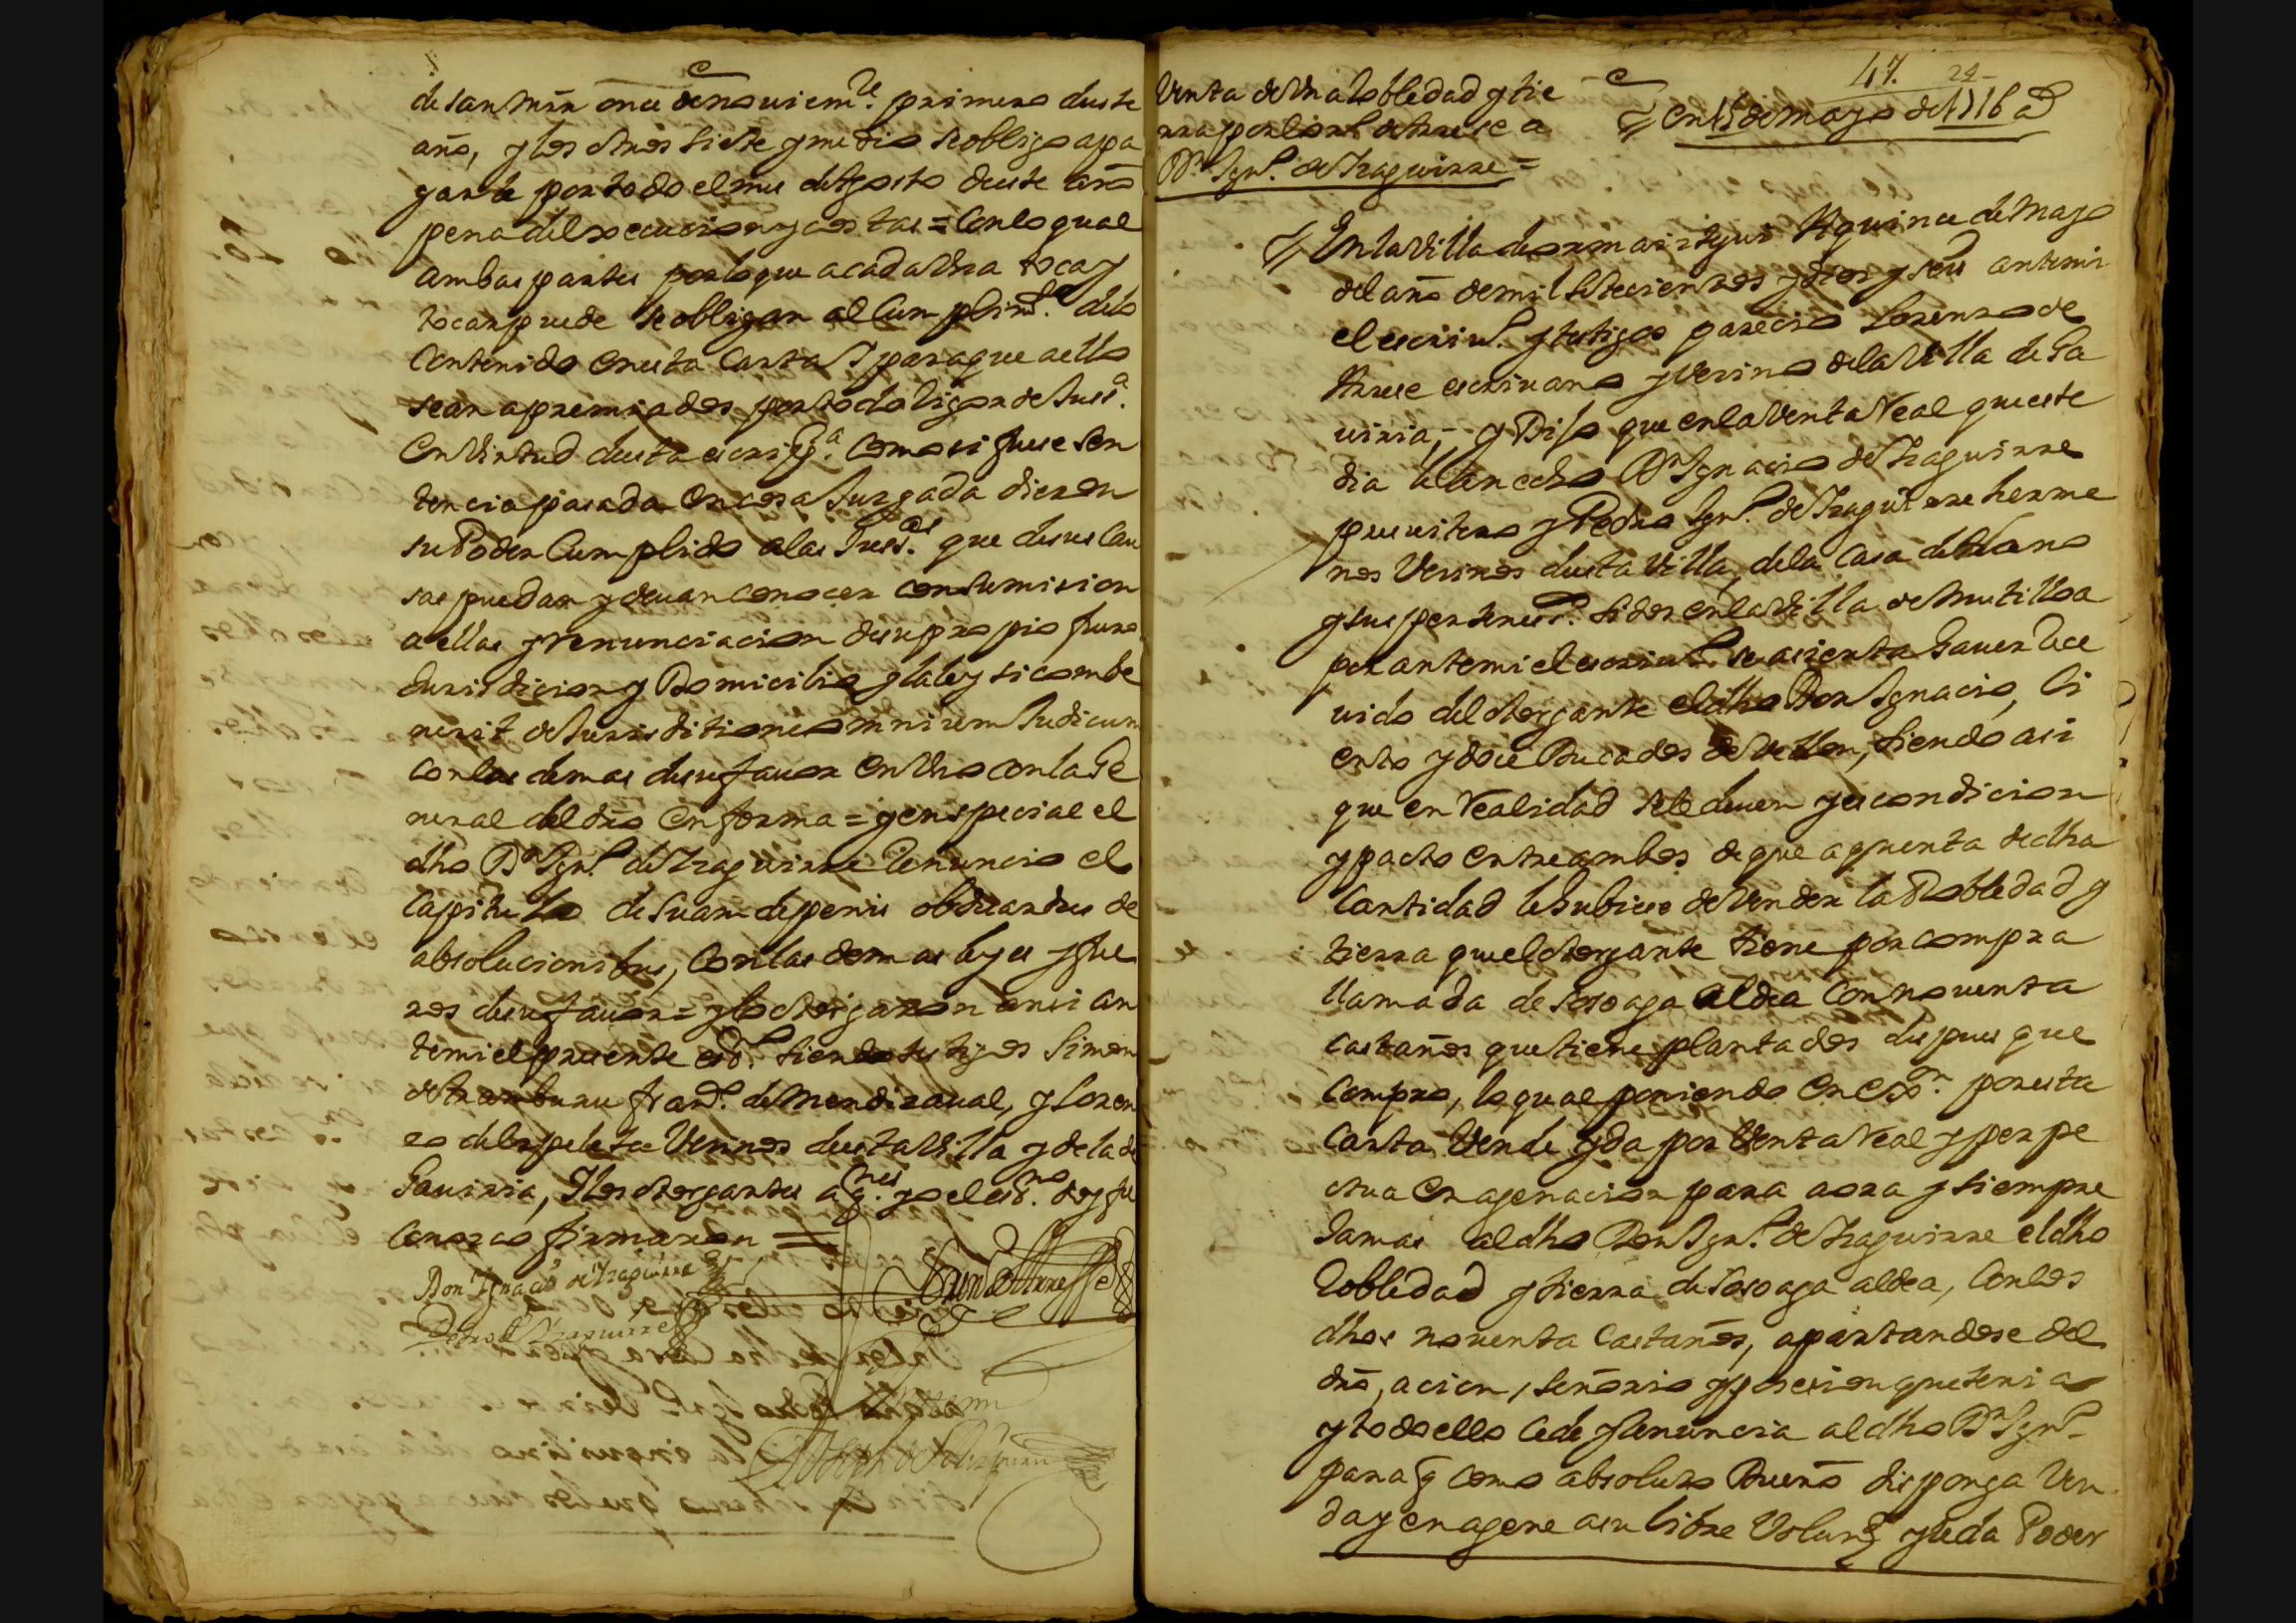 de san mrn once de noviem.e primero deeste
año, y los otros siete y medio se obligo a pa
garle por todo el mes de Agosto de este año
pena de execucion y costas = Con lo qual
ambas partes por lo que a cada Una toca y
tocar puede se obligan al Cumplim.to delo
Contenido en esta Carta, y para que a ello
sean apremiados por todo rigor de Juss.a
en Virtud de esta escrip.a como si fuese sen
tencia pasada en cosa Juzgada dieron
su Poder Cumplido a las Juss.as que de sus Cau
sas puedan y devan conocer con sumision
a ellas y renunciacion de su propio fuero
Jurisdicion y Domicilio y la ley si combe
nerit de Jurisditione omnium Judicum
con las demas de su favor en Uno con la Ge
neral del dro en forma = y en especial el
dho Dn Ign.o de Yraguirre renuncio el
Capitulo de suam de penis obduardus de
absolucionibus, con las demas leyes y fue
ros de su favor = y lo otorgaron ansi an
te mi el presente es.no siendo testigos Simon
de Aramburu fran.co de Mendizaual, y Loren
zo de Ezpeleta Vecinos de esta Villa y de la de
Gaviria, y los otorgantes a q.nes yo el es.no doy fee
Conozco firmaron =
Don Ignacio de Yraguirre
Pedro de Yraguirre
Ante mi
47. 24
Venta de Una Robledad y tie
rra por Lor.o de Yturse a
Dn Ign.o de Yraguirre =
En 15 de mayo de 1716 a
En la Villa de ormaiztegui A quince de Mayo
del año de mil setecientos y diez y seis ante mi
el escriv.o y testigos parecio Lorenzo de
Yturse escrivano y Vecino de la Villa de Ga
viria, y Dijo que en la Venta Real que este
dia le an echo Dn Ignacio de Yraguirre
presvitero y Pedro Ign.o de Yraguirre herma
nos Vecinos de esta Villa, de la Casa de
y sus pertenes.s sidos en la Villa de Mutiloa
por ante mi el escriv.o se asienta haver Rece
uido del otorgante el dho Don Ignacio, Ci
ento y doce Ducados de Vellon, siendo asi
que en Realidad se le deven y es condicion
y pacto entre ambos de que a quenta de dha
Cantidad le hubiese de Vender la Robledad y
tierra que el otorgante tiene por compra
llamada de sosoaga aldea Con noventa
castaños que tiene plantados despues que
compro, lo qual poniendo en ex.on por esta
Carta Vende y da por Venta Real y perpe
tua enagenacion para aora y siempre
Jamas al dho Don Ign.o de Yraguirre el dho
Robledad y tierra de sosoaga aldea, Con los
dhos noventa Castaños, apartandose del
dro, acion, señorio y posesion que tenia
y todo ello cede y Renuncia al dho Dn Ign.o
para q como absoluto Dueño disponga Ven
da y enagene a su libre Volun.d y le da Poder